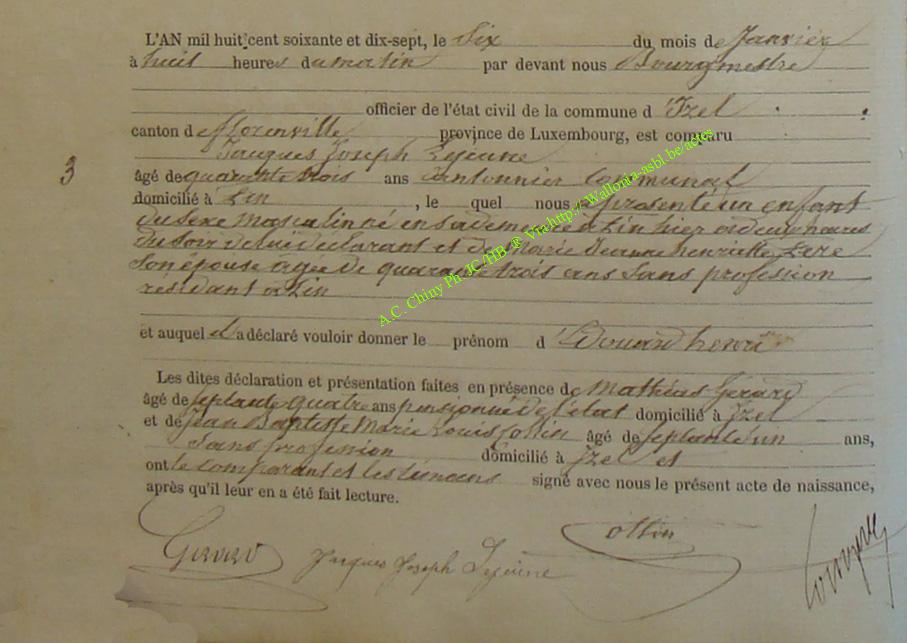 L'AN mil huit cent soixante et dix-sept, le Six du mois de Janvier
à huit heures du matin par devant nous Bourgmestre
officier de l'état civil de la commune d'Izel
canton de florenville province de Luxembourg, est comparu
Jacques Joseph Lejeune
3
âgé de quarante trois ans Cantonnier Communal
domicilié à , le quel nous a présenté un enfant
du sexe masculin né en sa demeure à hier à deux heures
du Soir de lui déclarant et de Marie Jeanne henriette
Son épouse âgée de quarante trois ans Sans profession
résidant à
et auquel il a déclaré vouloir donner le prénom d'Edouard henri
Les dites déclaration et présentation faites en présence de Mathias Gérard
âgé de Septante quatre ans pensionné de l'état domicilié à Izel
et de Jean Baptiste Marie Louis Collin âgé de Septante un ans,
Sans profession domicilié à Izel et
ont le Comparant et les témoins signé avec nous le présent acte de naissance,
après qu'il leur en a été fait lecture.
Gerard Jacques Joseph Lejeune Collin
A.C. Chiny Ph.JC /HB @ Via http:// Wallonia-asbl.be/actes